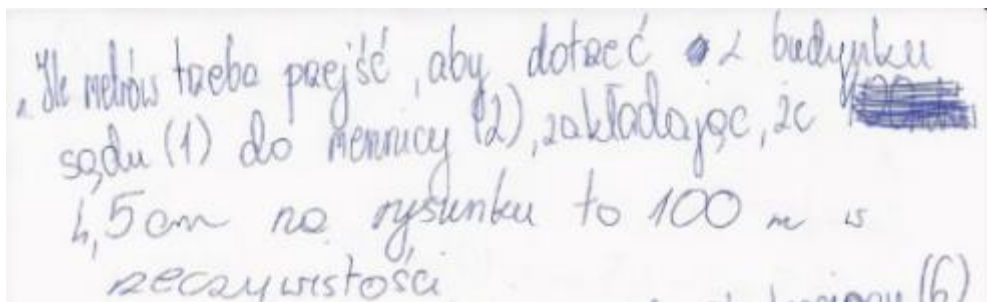 „Ile metrów trzeba przejść, aby dotrzeć z budynku
sądu (1) do mennicy (2), zakładając, że
4,5 cm na rysunku to 100 m w
rzeczywistości
(6)